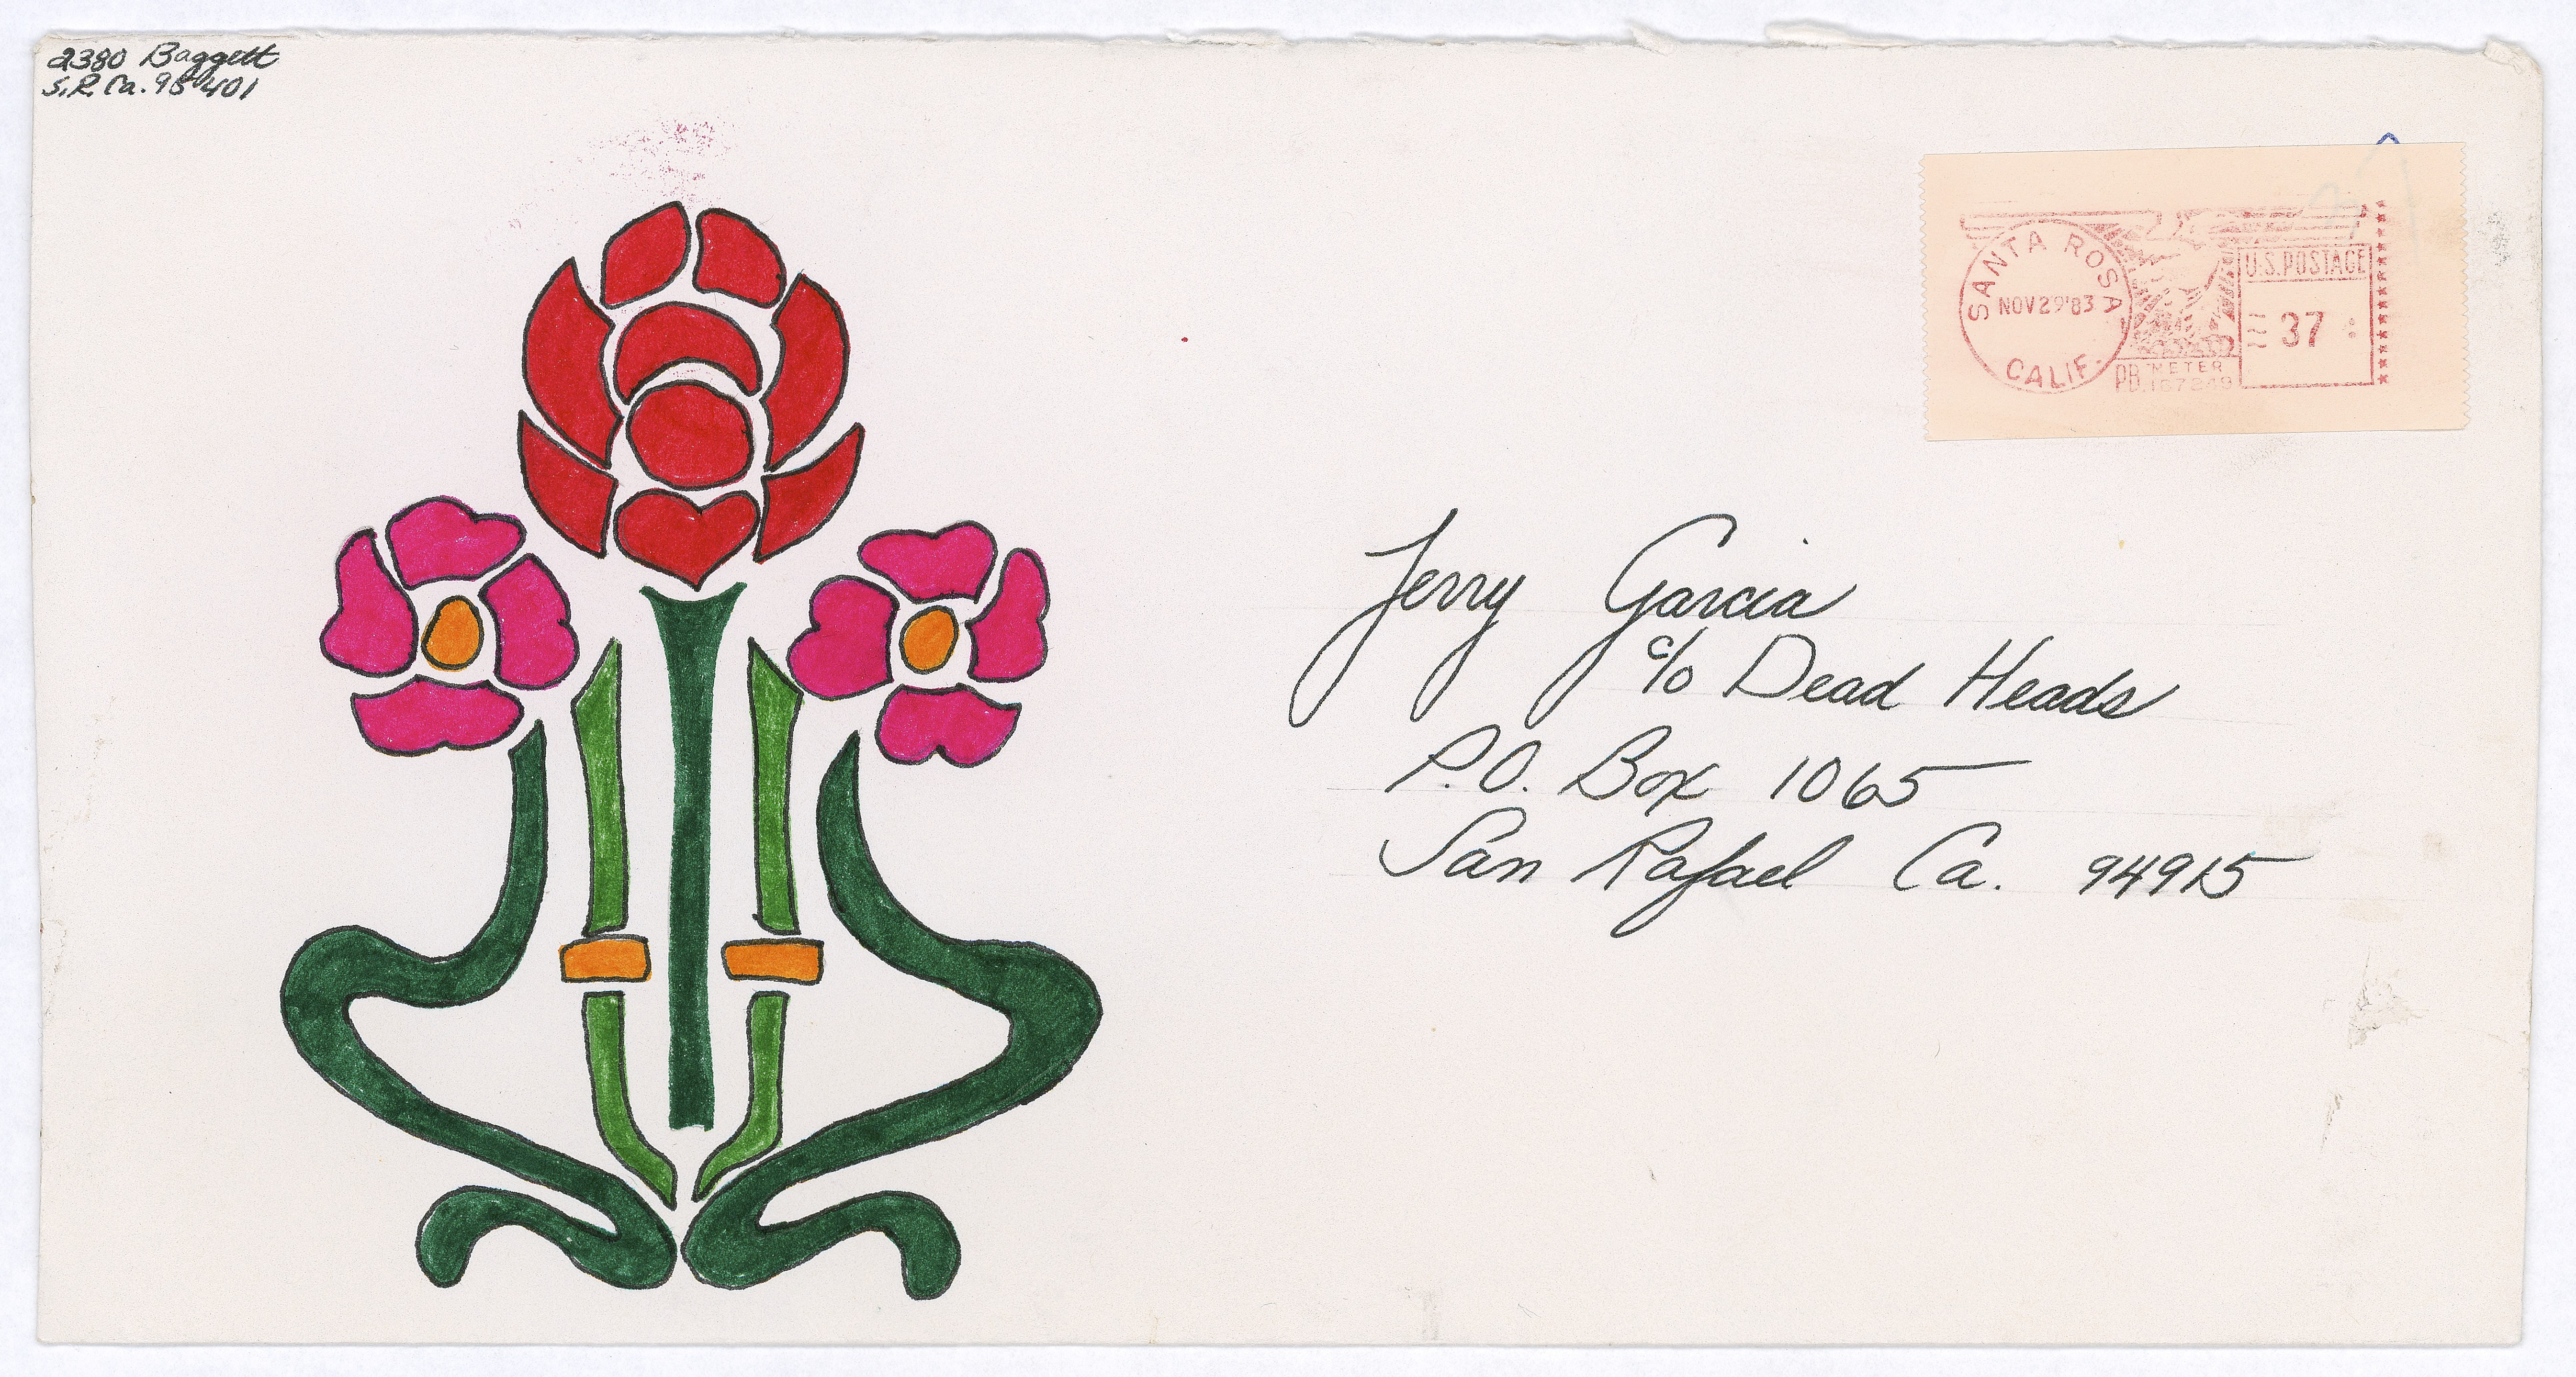 2380 Baggett
S.R. Ca. 95401
SANTA ROSA
NOV 29 '83
CALIF.
PB METER
U.S. POSTAGE
37
Jerry Garcia
c/o Dead Heads
P.O. Box 1065
San Rafael Ca. 94915